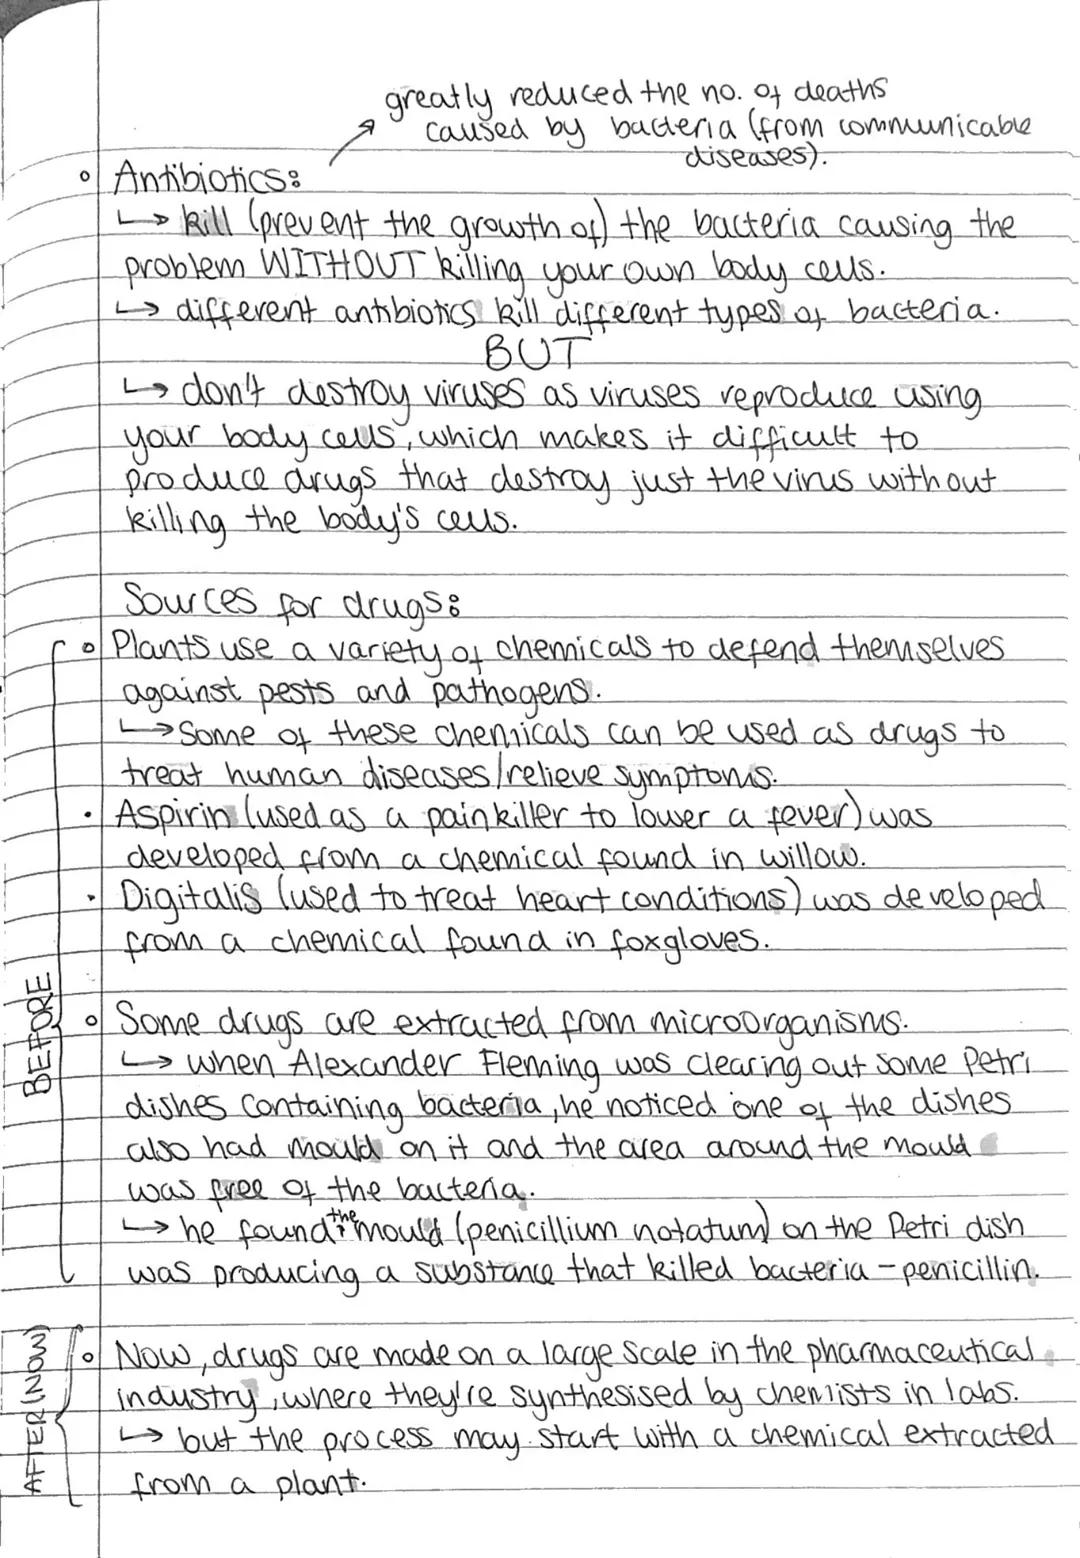 greatly reduced the no. of deaths
caused by bacteria (from communicable
diseases).
Antibiotics:
↳ kill (prevent the growth of) the bacteria causing the
problem WITHOUT killing your own body cells.
↳ different antibiotics kill different types of bacteria.
BUT
↳ don't destroy viruses as viruses reproduce using
your body cells, which makes it difficult to
produce drugs that destroy just the virus without
killing the body's cells.
Sources for drugs:
BEFORE
Plants use a variety of chemicals to defend themselves
against pests and pathogens.
↳ Some of these chemicals can be used as drugs to
treat human diseases/relieve symptoms.
• Aspirin (used as a painkiller to lower a fever) was
developed from a chemical found in willow.
• Digitalis (used to treat heart conditions) was developed
from a chemical found in foxgloves.
Some drugs are extracted from microorganisms.
↳ when Alexander Fleming was clearing out some Petri
dishes containing bacteria, he noticed one of the dishes
also had mould on it and the area around the mould
was free of the bacteria.
↳ he found the mould (penicillium notatum) on the Petri dish
was producing a substance that killed bacteria - penicillin.
AFTER (NOW)
Now, drugs are made on a large scale in the pharmaceutical
industry, where they're synthesised by chemists in labs.
↳ but the process may start with a chemical extracted
from a plant.